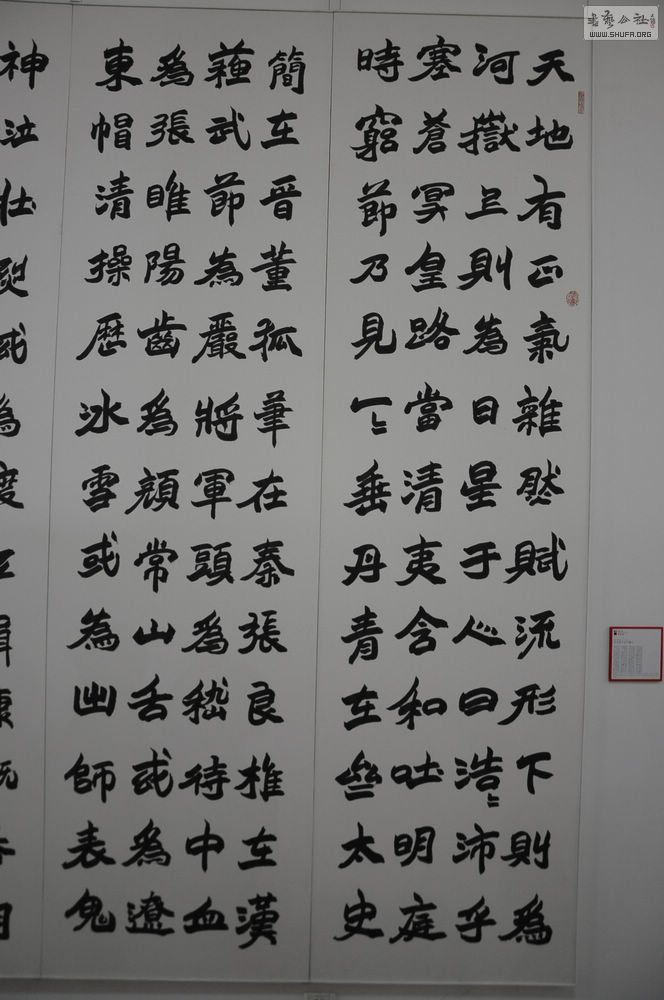 天地有正氣雜然賦流形下則為
河嶽上則為日星于人曰浩〻沛乎
塞蒼冥皇路當清夷含和吐明庭
時窮節乃見一〻垂丹青在齊太史
簡在晉董狐筆在秦張良椎在漢
蘇武節為嚴將軍頭為嵇待中血
為張睢陽齒為顏常山舌或為遼
東帽清操歷冰雪或為出師表鬼
神泣壯烈或為
书艺公社
WWW.SHUFA.ORG